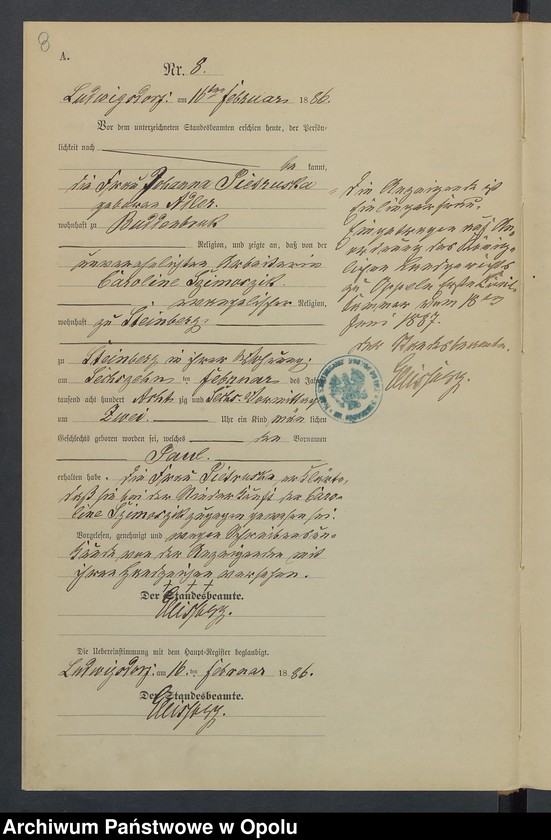 8
A.
Nr. 8.
Ludwigsdorf am 16ten Februar 1886.
Vor dem unterzeichneten Standesbeamten erschien heute, der Persön-
lichkeit nach
be kannt,
die Frau Johanna Pietruska
geborene Adler
wohnhaft zu
Religion, und zeigte an, daß von der
unverehelichten Arbeiterin
Caroline Szimaszik
evangelischer Religion,
wohnhaft zu Steinberg
zu Steinberg in ihrer Wohnung
am Sechszehn ten Februar des Jahres
tausend acht hundert Acht zig und Sechs Vormittag
um Zwei Uhr ein Kind männ lichen
Geschlechts geboren worden sei, welches den Vornamen
Paul.
erhalten habe. Die Frau Pietruska erklärte,
daß sie bei der Niederkunft der Caro-
line Szimaszik zugegen gewesen sei.
Vorgelesen, genehmigt und wegen Schreibensun-
kunde von der Anzeigenden mit
ihren Handzeichen versehen.
+ + +
Der Standesbeamte.
Die Uebereinstimmung mit dem Haupt-Register beglaubigt.
Ludwigsdorf am 16. ten Februar 1886.
Der Standesbeamte.
Die Anzeigende ist
Eingetragen auf An-
ordnung des König-
lichen Landgerichts
zu Oppeln Erste Civil-
kammer vom 18ten
Juni 1887.
Der Standesbeamte.
Archiwum Państwowe w Opolu